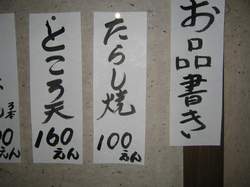 お品書き
たらし焼
100えん
ところ天
160えん